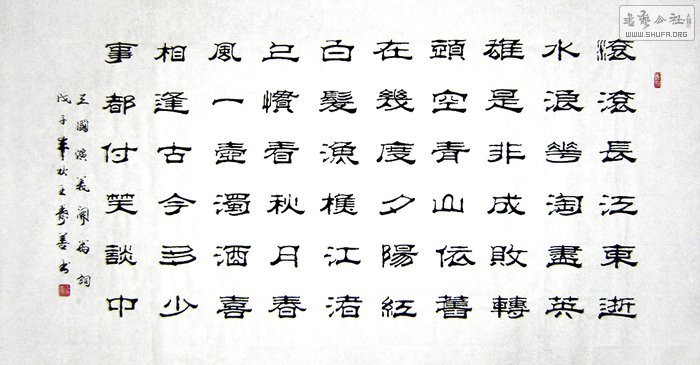 滾滾長江東逝
水浪花淘盡英
雄是非成敗轉
頭空青山依舊
在幾度夕陽紅
白髮漁樵江渚
上慣看秋月春
風一壺濁酒喜
相逢古今多少
事都付笑談中
三國演義開篇詞
戊子年秋王善书
书艺公社
WWW.SHUFA.ORG